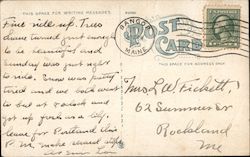 THIS SPACE FOR WRITING MESSAGES.
Fine ride up. Trees
have turned just enough
to be beautiful and
Sunday was just right
to ride. Snow was pretty
tired and we both went
to bed at and
got up fresh as a lily.
leave for Portland this
P. M. make
BANGOR
MAINE
POST
CARD
THIS SPACE FOR ADDRESS ONLY.
Mrs L. W. Fickett,
62 Summer St
Rockland
Me